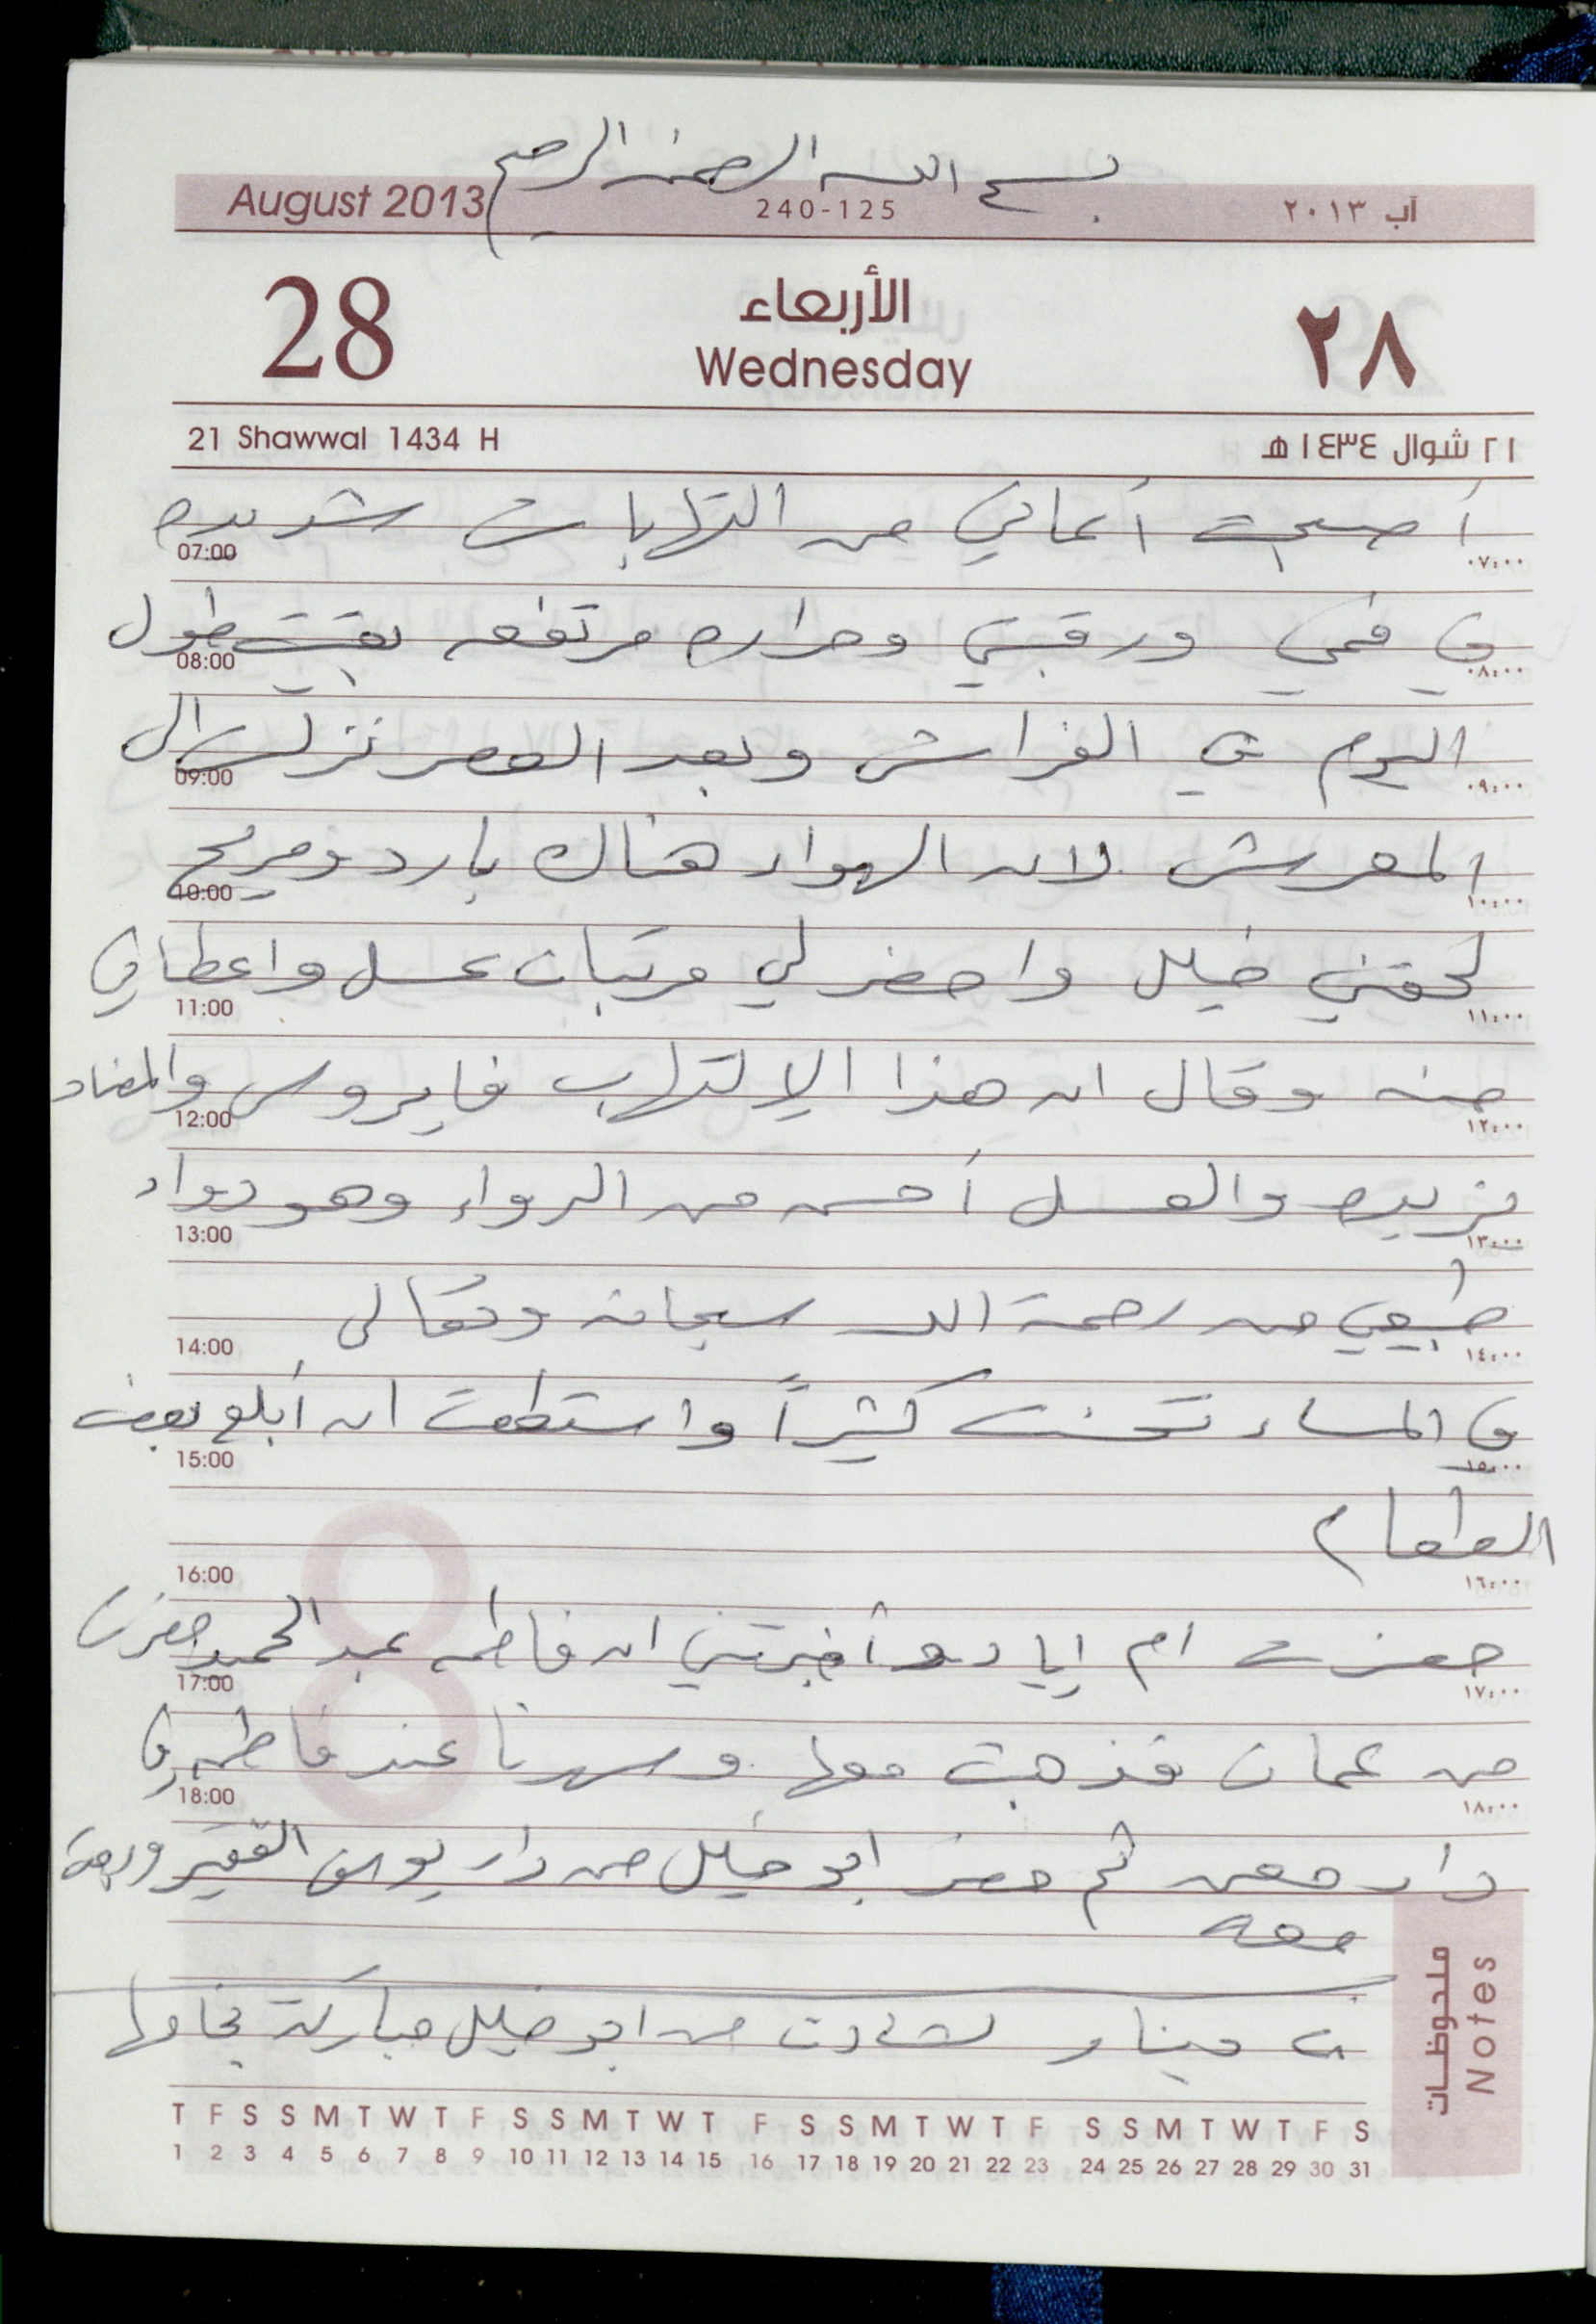 بسم الله الرحمن الرحيم
August 2013 240-125 آب ٢٠١٣
28 الأربعاء ٢٨
Wednesday
21 Shawwal 1434 H ٢١ شوال ١٤٣٤ هـ
أصبحت أعاني من التهابات شديده
07:00 ٠٧:٠٠
في فمي ورقبتي وحراره مرتفعه بقيت طول
08:00 ٠٨:٠٠
اليوم في الفراش وبعد العصر نزلت الى
09:00 ٠٩:٠٠
المعرش لان الهواء هناك بارد ومريح
10:00 ١٠:٠٠
لحقني خليل واحضر لي مرتبان عسل واعطاني
11:00 ١١:٠٠
منه وقال ان هذا الإلتهاب فايروس والمضاد
12:00 ١٢:٠٠
يزيده والعسل أحسن من الدواء وهو دواء
13:00 ١٣:٠٠
طبيعي من رحمة الله سبحانه وتعالى
14:00 ١٤:٠٠
في المساء تحسنت كثيراً واستطعت ان أبلع بعض
15:00 ١٥:٠٠
الطعام
16:00 ١٦:٠٠
حضرت ام إياد وأخبرتني ان فاطمه عبد الحميد حضرت
17:00 ١٧:٠٠
من عمان فذهبت معها وسهرنا عند فاطمه في
18:00 ١٨:٠٠
دار معن ثم حضر ابو خليل من دار يوسف الفقير ورجعت
معه
دينار من ابو خليل مباركة نجاحها
ملحوظات Notes
T F S S M T W T F S S M T W T F S S M T W T F S S M T W T F S
1 2 3 4 5 6 7 8 9 10 11 12 13 14 15 16 17 18 19 20 21 22 23 24 25 26 27 28 29 30 31